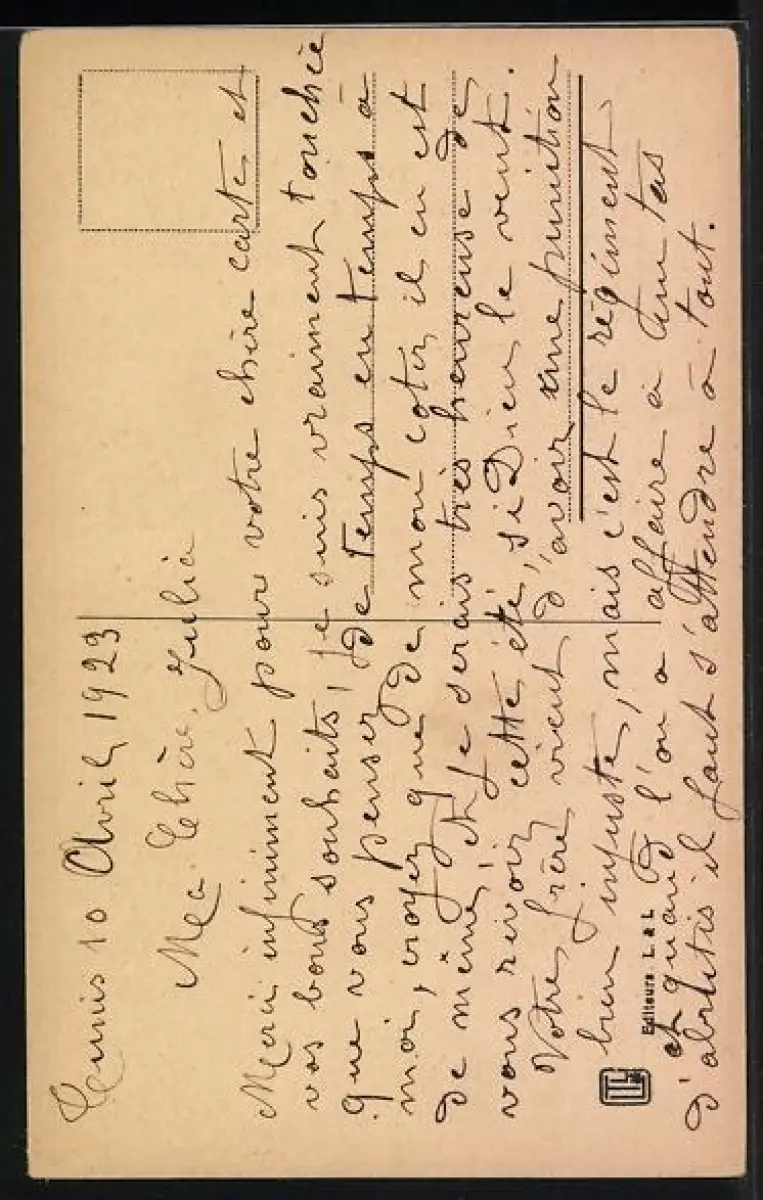 Tunis 10 Avril 1923
Ma Chère, Julia
Merci infiniment pour votre chère carte, et
vos bons souhaits, je suis vraiment touchée
que vous pensez de temps en temps à
moi, croyez que de mon coter, il en est
de même, et je serais très heureuse de
vous revoir cette été, si Dieu le veut.
Votre frère vient d'avoir une punition
bien injuste, mais c'est le régiment
et quand l'on a affaire à un tas
d'abrutis il faut s'attendre à tout.
Editeurs L. & L